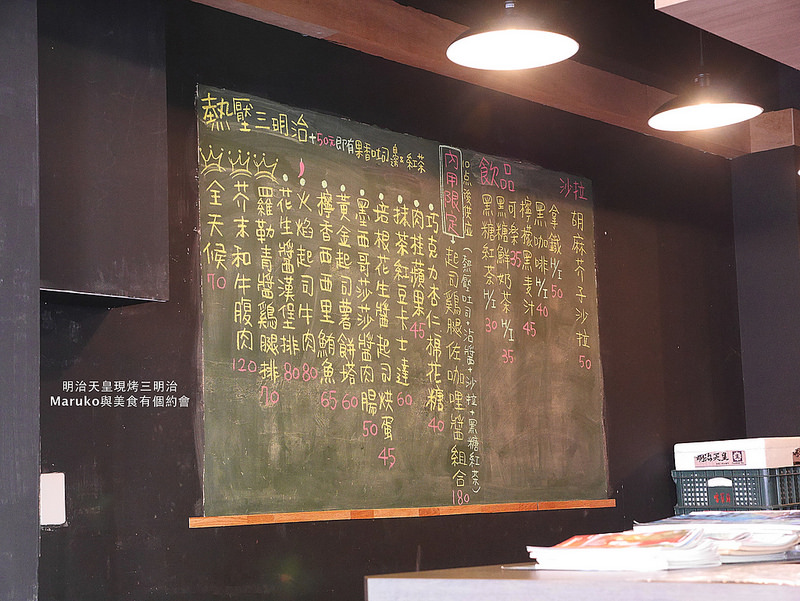 熱壓三明治+50元即有果香吐司邊&紅茶
全天候 70
芥末和牛腹肉 120
羅勒青醬雞腿排 70
花生醬漢堡排 80
火焰起司牛肉 80
檸香西西里鮪魚 65
黃金起司薯餅塔 60
墨西哥莎莎醬肉腸 50
培根花生醬起司烘蛋 45
抹茶紅豆卡士達 60
肉桂蘋果 45
巧克力杏仁棉花糖 40
內用限定
起司雞腿佐咖哩醬組合 180
10点後供應(熱壓吐司+沾醬+沙拉+黑糖紅茶)
飲品
黑糖紅茶 H/I 30
黑糖鮮奶茶 H/I 35
可樂 35
檸檬黑麥汁 45
黑咖啡 H/I 40
拿鐵 H/I 50
沙拉
胡麻芥子沙拉 50
明治天皇現烤三明治
Maruko與美食有個約會
明治天皇